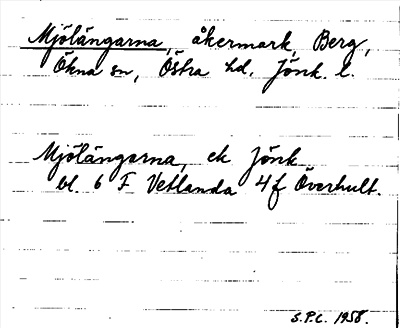 Mjölängarna, åkermark, Berg,
Ökna sn, Östra hd, Jönk. l.
Mjölängarna, ek Jönk
bl. 6 F Vetlanda 4f Överhult.
S.P.C. 1958.